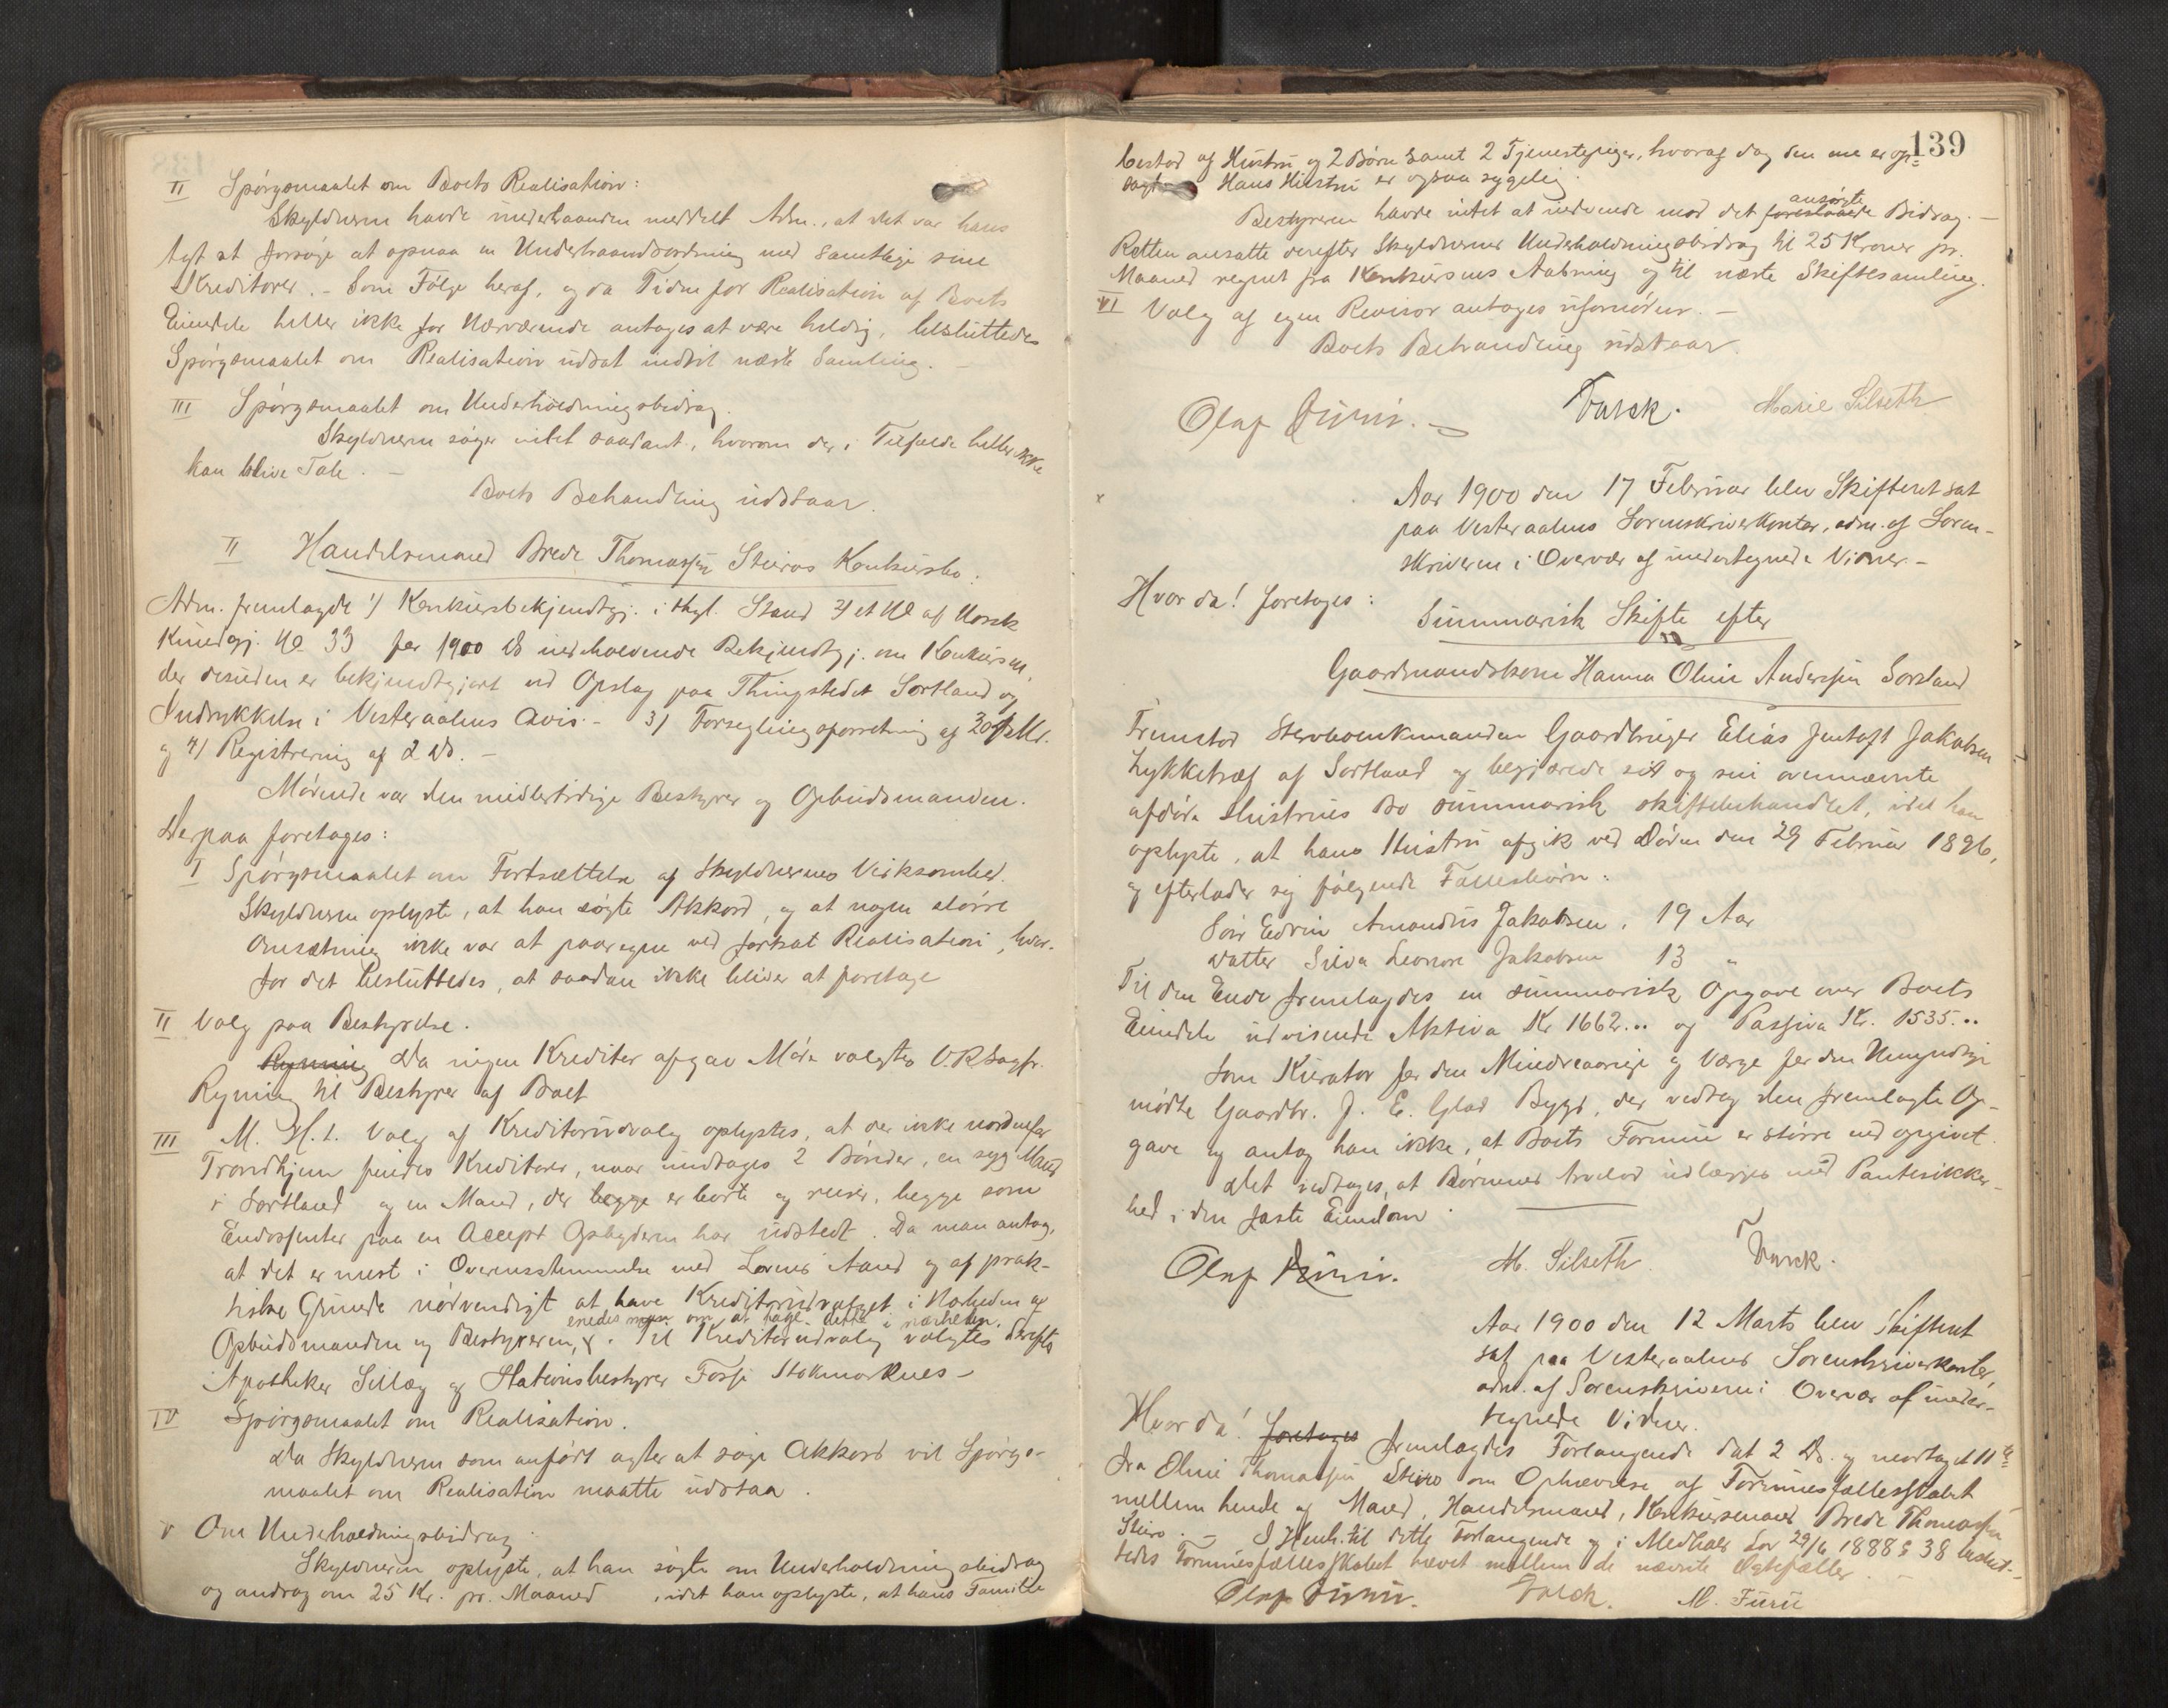 II Spørgsmaalet om Boets Realisation:
Skyldneren havde underhaanden meddelt Adm., at det var hans
Agt at forsøge at opnaa en Underhaandsordning med samtlige sine
Kreditorer. – Som Følge heraf, og da Tiden for Realisation af Boets
Eiendele heller ikke for Nærværende antages at være heldig, besluttedes
Spørgsmaalet om Realisation udsat indtil næste Samling. –
III Spørgsmaalet om Underholdningsbidrag.
Skyldneren søger intet saadant, hvorom der i Tilfælde heller ikke
kan blive Tale. –
Boets Behandling udstaar.
II Handelsmand Brede Thomassen Stieros Konkursbo.
Adm. fremlagde 1) Konkursbekjendtgj. i Stand 2) et No af Norsk
Kundgj. No 33 for 1900 indeholdende Bekjendtgj. om Konkursen,
der desuden er bekjendtgjort ved Opslag paa Thingstedet Sortland og
Indrykkelse i Vesteraalens Avis. – 3) Forseglingsforretning af
og 4) Registrering af 2 ds. –
Mødende var den midlertidige Bestyrer og Opbudsmanden.
Derpaa foretoges:
I Spørgsmaalet om Fortsættelse af Skyldnerens Virksomhed.
Skyldneren oplyste, at han søgte Akkord, og at nogen større
Omsætning ikke var at paaregne ved fortsat Realisation, hvor-
for det besluttedes, at saadan ikke bliver at foretage
II Valg paa Bestyrelse.
Ryning Da ingen Kreditor afgav Møde valgtes O.R.Sagf.
Ryning til Bestyrer af Boet
III M. H. t. Valg af Kreditorudvalg oplystes, at der ikke nordenfor
Trondhjem findes Kreditorer, naar undtages 2 Bønder, en syg Mand
i Sortland og en Mand, der begge er borte og reiser, begge som
Endossenter paa en Accept Opbyderen har udstedt. Da man antog,
at det er mest i Overensstemmelse med Lovens Aand og af prak-
tiske Grunde nødvendigt at have Kreditorudvalget i Nærheden af
enedes man om at tage dette i nærheden.
Opbudsmanden og Bestyreren, . Til Kreditorudvalg valgtes derefter
Apotheker Sillæg og Stationsbestyrer Fosse Stokmarknes –
IV Spørgsmaalet om Realisation.
Da Skyldneren som anført agter at søge Akkord vil Spørgs-
maalet om Realisation maatte udstaa.
V Om Underholdningsbidrag.
Skyldneren oplyste, at han søgte om Underholdningsbidrag
og androg om 25 Kr. pr. Maaned , idet han oplyste, at hans Familie
139
bestod af Hustru og 2 Børn samt 2 Tjenestepiger, hvoraf dog den ene er op-
sagt. Hans Hustru er ogsaa sygelig.
ansøgte
Bestyreren havde intet at indvende mod det foreslaaede Bidrag. –
Retten ansatte derefter Skyldnerens Underholdningsbidrag til 25 Kroner pr.
Maaned regnet fra Konkursens Aabning og til næste Skiftesamling.
VI Valg af egen Revisor antages ufornøden. –
Boets Behandling udstaar.
Olaf Marie Silseth
Aar 1900 den 17 Februar blev Skifteret sat
paa Vesteraalens Sorenskriverkontor, adm. af Soren-
skriveren i Overvær af undertegnede Vidner –
Hvor da! foretoges:
Summarisk Skifte efter
Gaardmandskone Hanna Oline Anderssen Sortland
Fremstod Sterboenkemanden Gaardbruger Elias Jentoft Jakobsen
Lykketræf af Sortland og begjærede sit og sin ovennævnte
afdøde Hustrus Bo summarisk skiftebehandlet, idet han
oplyste, at hans Hustru afgik ved Døden den 29 Februar 1896,
og efterlader sig følgende Fællesbørn:
Søn Edvin Amandus Jakobsen, 19 Aar
Datter Leonore Jakobsen 13 "
Til den Ende fremlagdes en summarisk Opgave over Boets
Eiendele udvisende Aktiva Kr 1662.. og Passiva Kr. 1535..
Som Kurator for den Mindreaarige og Værge for den Umyndige
mødte Gaardbr. J. E. Glad Bygd, der vedtog den fremlagte Op-
gave og antog han ikke, at Boets Formue er større end opgivet.
Det vedtoges, at Børnenes Arvelod udlægges med Pantesikker-
hed i den faste Eiendom.
Olaf M. Silseth.
Aar 1900 den 12 Marts blev Skifteret
sat paa Vesteraalens Sorenskriverkontor,
adm. af Sorenskriveren i Overvær af under-
tegnede Vidner.
Hvor da! foretoges fremlagdes Forlangende dat 2 ds. og modtaget 11te
fra Oline Thomassen Stiero om Ophævelse af Formuesfællesskabet
mellem hende og Mand, Handelsmand, Konkursmand Brede Thomassen
Stiero. – I Henh. til dette Forlangende og i Medhold Lov 29/6 1888 § 38 beslut-
tedes Formuesfællesskabet hævet mellem de nævnte Ægtefæller. –
Olaf M. Furu